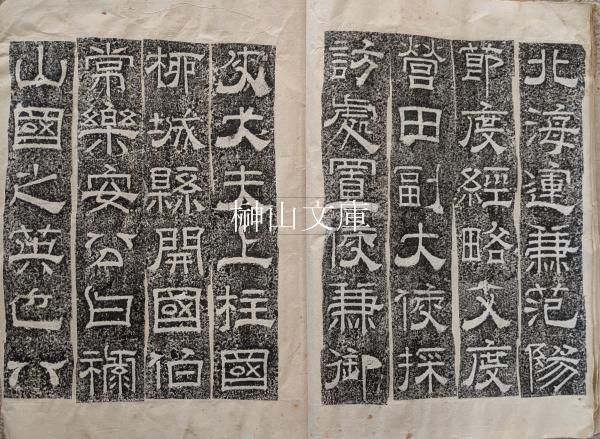 北海運兼范陽
節度經略支度
營田副大使採
訪處置使兼御
史大夫上柱國
柳城縣開國伯
常樂安公曰祿
山國之英也
榊山文庫